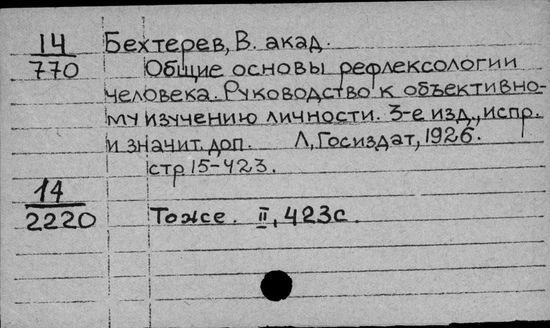 14
770
Бехтерев, В. акад.
Общие основы рефлексологии
человека. Руководство к объективно-
му изучению личности. 3-е изд., испр.
и значит. доп. Л, Госиздат, 1926.
стр 15-423.
14
2220
Тоже. II, 423с.